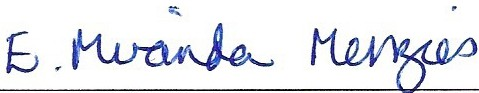 E. Miranda Menzies